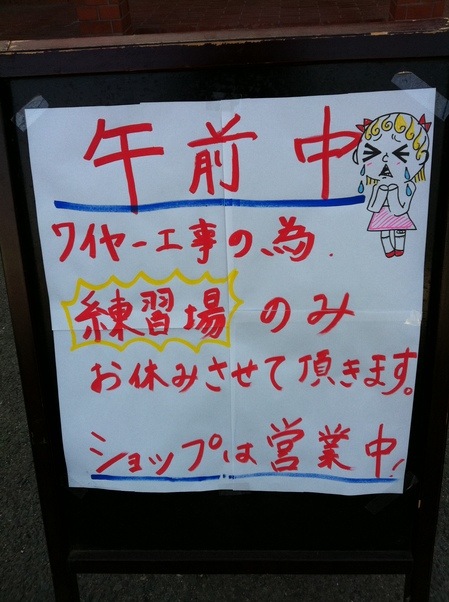 午前中
ワイヤー工事の為.
練習場のみ
お休みさせて頂きます。
ショップは営業中!